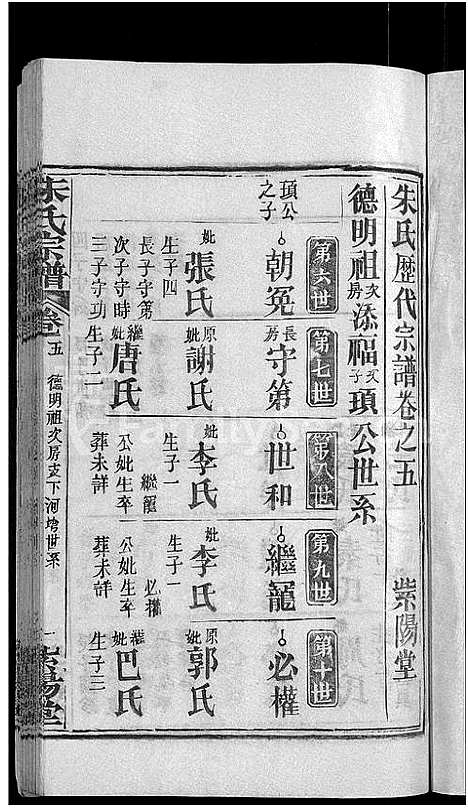 朱氏歷代宗譜卷之五 紫陽堂
德明祖次房添福次子頊公世系
第六世
頊公之子
朝冕
妣張氏
生子四
長子守第
次子守時
三子守功
第七世
長房守第
原妣謝氏
繼妣唐氏
生子二
第八世
世和
妣李氏
生子一
繼寵
公妣生卒
葬未詳
第九世
繼寵
妣李氏
生子一
必權
公妣生卒
葬未詳
第十世
必權
原妣郭氏
繼妣巴氏
生子三
朱氏宗譜 卷五 德明祖次房支下河塆世系 一 紫陽堂